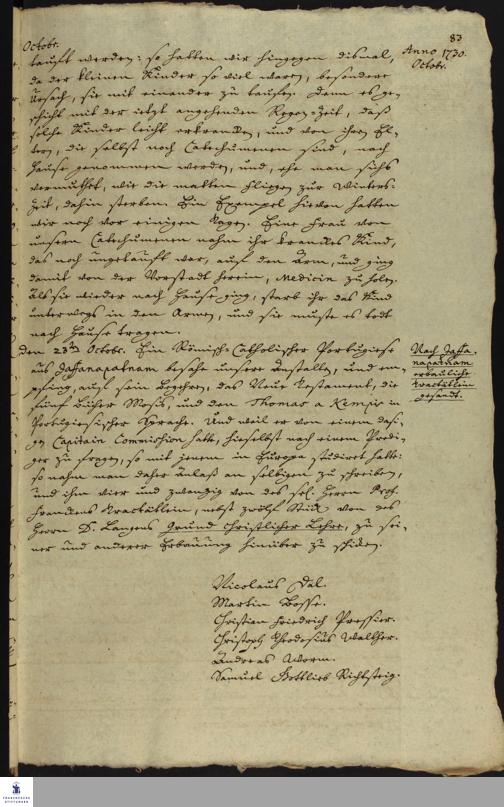 83
Octobr.
Anno 1730.
Octobr.
taufft werden: so hatten wir hingegen dismal,
da der kleinen Kinder so viel waren, besondere
Ursach, sie mit einander zu tauffen. Denn es ge-
schieht mit der ietzt angehenden Regen-Zeit, daß
solche Kinder leicht erkrancken, und von ihren El-
tern, die selbst noch Catechumeni sind, nach
Hause genommen werden, und, ehe man sichs
vermuthet, wie die matten Fliegen zur Winters-
Zeit, dahin sterben. Ein Exempel hievon hatten
wir noch vor einigen Tagen. Eine Frau von
unsern Catechumenen nahm ihr kranckes Kind,
das noch ungetaufft war, auf den Arm, und ging
damit von der Vorstadt herein, Medicin zu holen.
Als sie wieder nach Hause ging, starb ihr das Kind
unterwegs in den Armen, und sie muste es todt
nach Hause tragen.
Den 23ten Octobr. Ein Römisch-Catholischer Portugiese
aus Jaffanapatnam besahe unsere Anstalten, und em-
pfing, auf sein Begehren, das Neue Testament, die
fünf Bücher Mosis, und den Thomas a Kempis in
Portugiesischer Sprache. Und weil er von einem dasi-
gen Capitain Commission hatte, hieselbst nach einem Predi-
ger zu fragen, so mit jenem in Europa studiret hatte:
so nahm man daher Anlaß an selbigen zu schreiben,
und ihm vier und zwanzig von des sel. Herrn Prof.
Franckens Tractätlein, nebst zwölf Stück von des
Herrn D. Langens Grund Christlicher Lehre, zu sei-
ner und anderer Erbauung hinüber zu schicken.
Nach Jaffa-
napatnam
erbauliche
Tractätlein
gesandt.
Nicolaus Dal.
Martin Bosse.
Christian Friedrich Pressier.
Christoph Theodosius Walther.
Andreas Worm.
Samuel Gottlieb Richtsteig.
FRANCKESCHE
STIFTUNGEN